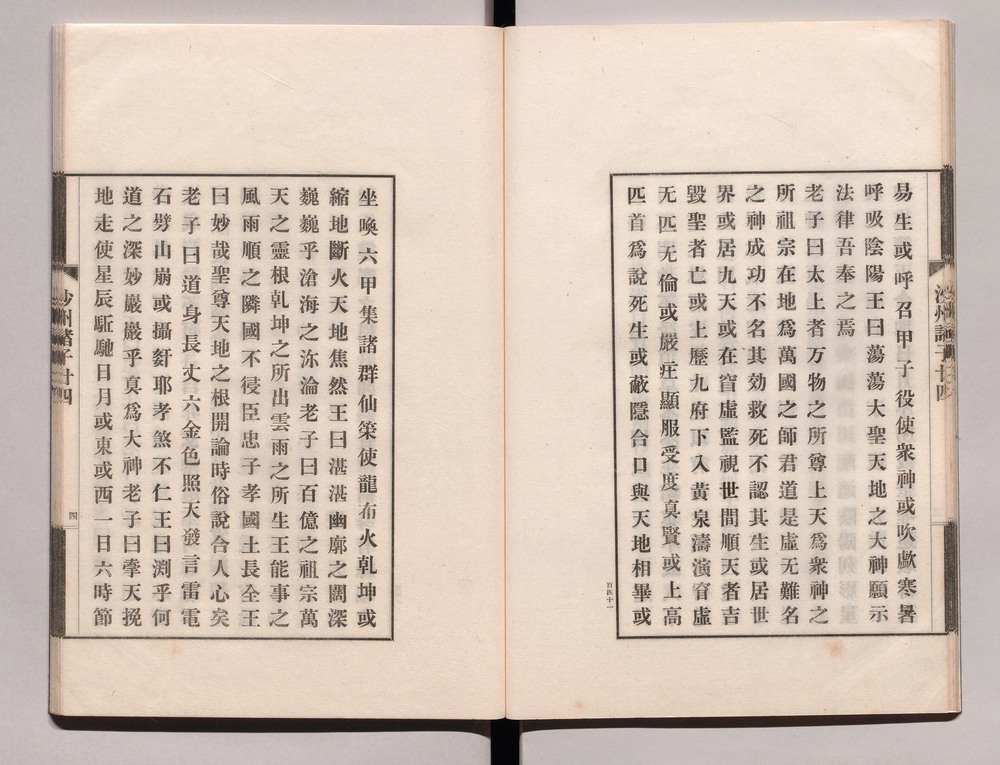 易生或呼召甲子役使衆神或吹歔寒暑
呼吸陰陽王曰蕩蕩大聖天地之大神願示
法律吾奉之焉
老子曰太上者万物之所尊上天爲衆神之
所祖宗在地爲萬國之師君道是虛无難名
之神成功不名其効救死不認其生或居世
界或居九天或在窅虛監視世間順天者吉
毀聖者亡或上歷九府下入黃泉濤演窅虛
无匹无倫或嚴疘顯服受度真賢或上高
匹首爲說死生或蔽隱合口與天地相畢或
百四十一
坐喚六甲集諸群仙策使龍布火乹坤或
縮地斷火天地焦然王曰湛湛幽廓之闊深
巍巍乎滄海之沵淪老子曰百億之祖宗萬
天之靈根乹坤之所出雲雨之所生王能事之
風雨順之隣國不侵臣忠子孝國土長全王
曰妙哉聖尊天地之根開論時俗說合人心矣
老子曰道身長丈六金色照天發言雷電
石劈山崩或攝姧耶孝煞不仁王曰渊乎何
道之深妙巖巖乎真爲大神老子曰牽天挽
地走使星辰駈馳日月或東或西一日六時節
沙州諸子廿四
四